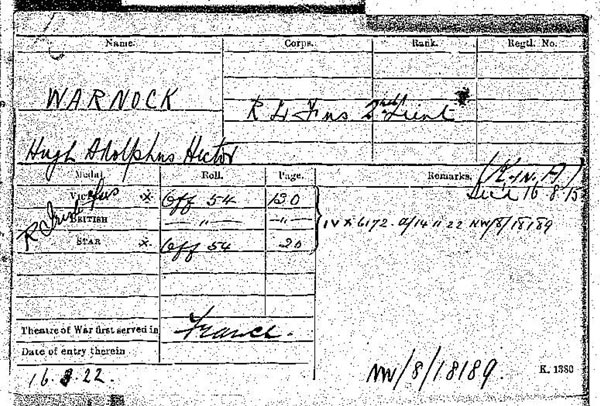 Name. Corps. Rank. Regtl. No.
WARNOCK
R Ir Fus 2nd Lieut
Hugh Adolphus Hector
Medal. Roll. Page. Remarks.
(K. in A.)
VICTORY x Off 54 130
16.8.15
R Irish Fus
BRITISH -"- -"-
IV x 6172. 14 11 22 NW/8/18189
STAR x Off 54 20
Theatre of War first served in France.
Date of entry therein
16.8.22. NW/8/18189. K. 1380